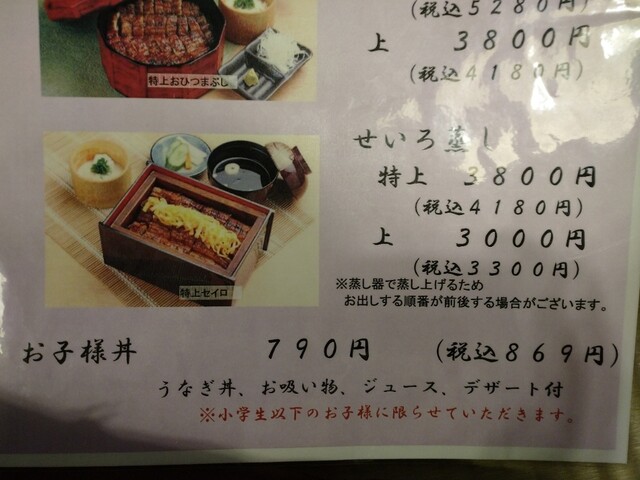 (税込5280円)
特上おひつまぶし
上 3800円
(税込4180円)
せいろ蒸し
特上 3800円
(税込4180円)
上 3000円
(税込3300円)
特上セイロ
※蒸し器で蒸し上げるため
お出しする順番が前後する場合がございます。
お子様丼 790円 (税込869円)
うなぎ丼、お吸い物、ジュース、デザート付
※小学生以下のお子様に限らせていただきます。